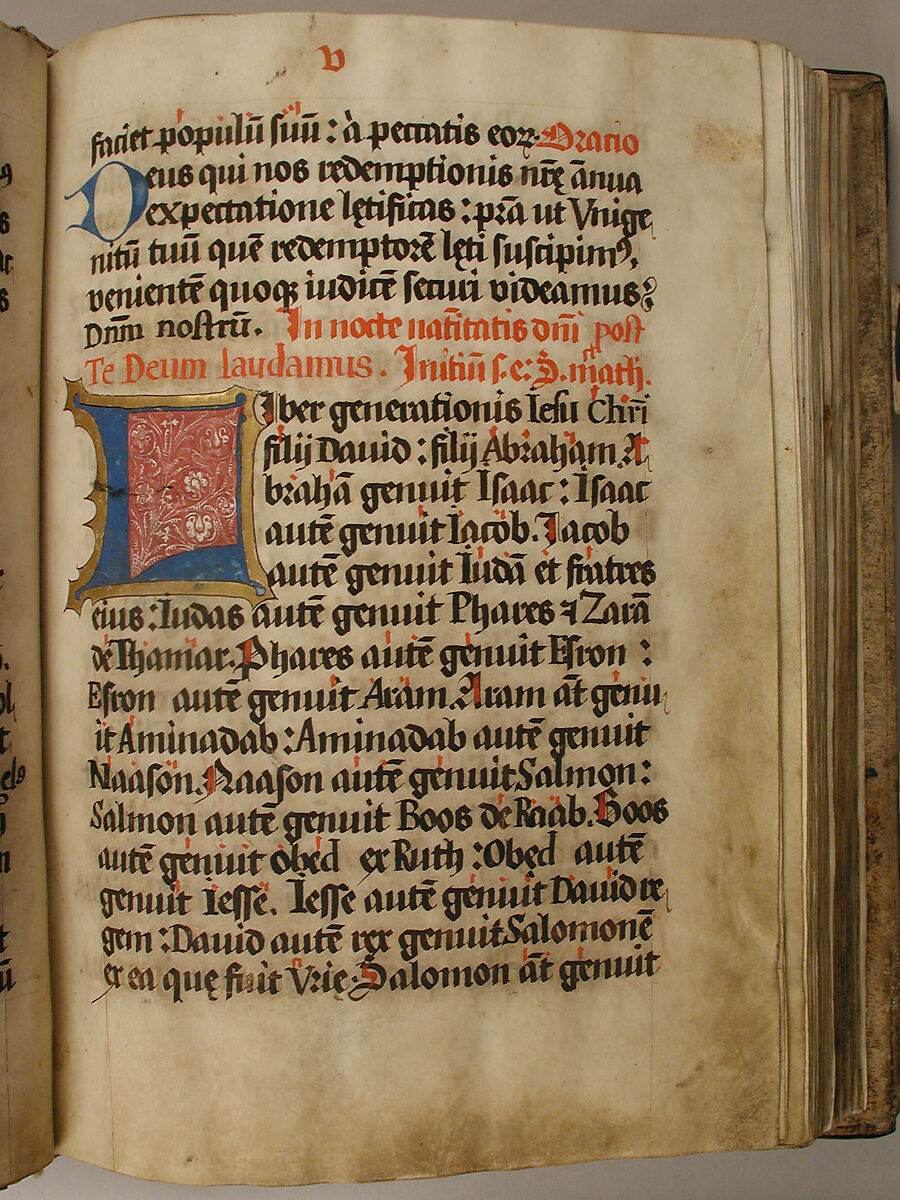 V
faciet populū suū : à peccatis eoꝝ. Oratio
Deus qui nos redemptionis nr̄ę ānua
expectatione lętificas : pr̄a ut Vnige
nitū tuū quē redemptorē lęti suscipimꝰ,
venientē quoqꝫ iudicē securi videamus :
Dnm̄ nostrū. In nocte natītatis dn̄i post
Te Deum laudamus. Initiū s. e: S. math.
Liber generationis Iesu Chri̅
filij Dauid : filij Abraham. A
brahā genuit Isaac : Isaac
autē genuit Iacob. Iacob
autē genuit Iudā et fratres
eius : Iudas autē genuit Phares ⁊ Zarā
de Thamar. Phares autē genuit Esron :
Esron autē genuit Aram. Aram at̄ genu
it Aminadab : Aminadab autē genuit
Naason. Naason autē genuit Salmon :
Salmon autē genuit Boos de Raab. Boos
autē genuit Obęd ex Ruth : Obęd autē
genuit Iesse. Iesse autē genuit Dauid re
gem : Dauid autē rex genuit Salomonē
ex ea quę fuit Vrię. Salomon at̄ genuit